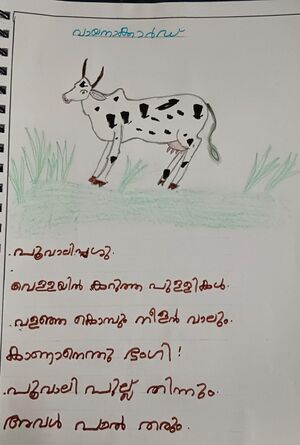 വായനാക്കാർഡ്
പൂവാലിപ്പശു.
വെള്ളയിൽ കറുത്ത പുള്ളികൾ.
വളഞ്ഞ കൊമ്പും നീളൻ വാലും.
കാണാനെന്തു ഭംഗി!
പൂവാലി പുല്ല് തിന്നും.
അവൾ പാൽ തരും.